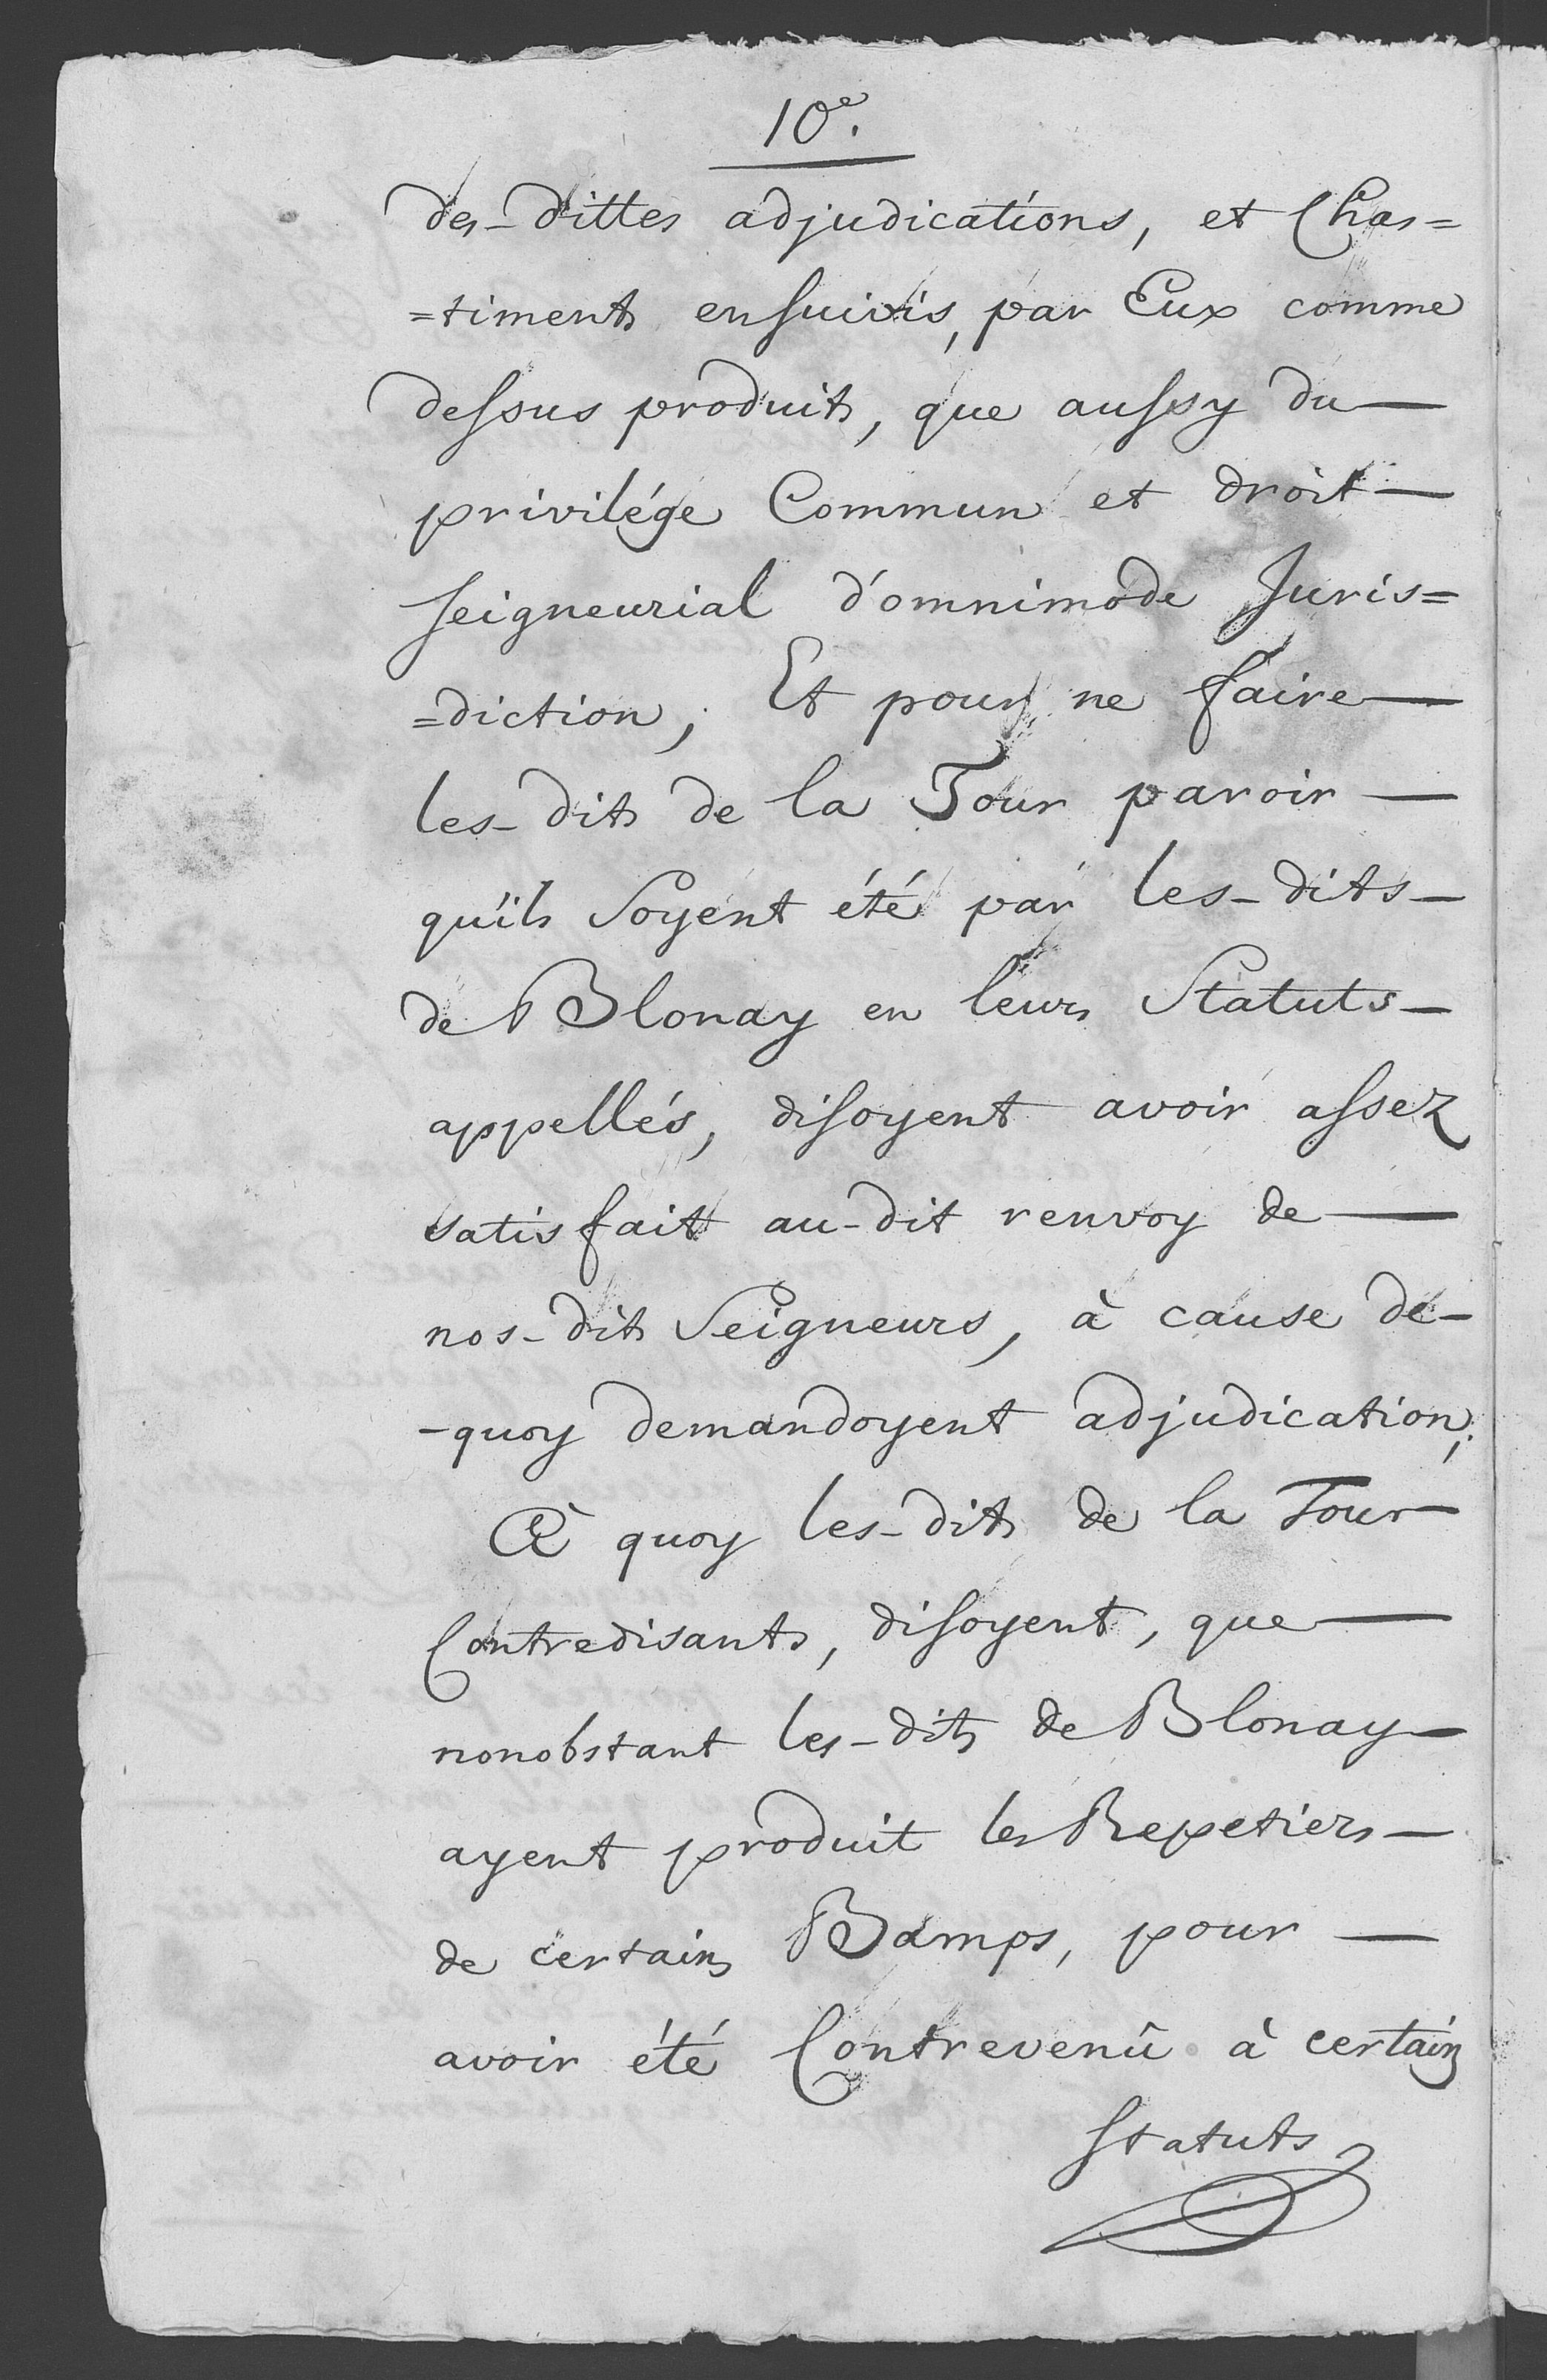 10e.
des-dittes adjudications, et Chas=
=timents ensuivis, par Eux comme
dessus produits, que aussy du —
privilége Commun et droit —
seigneurial d'omnimode Juris=
=diction; Et pour ne faire —
les-dits de la Tour paroir —
qu'ils soyent été par les-dits —
de Blonay en leurs Statuts —
appellés, disoyent avoir assez
satisfait au-dit renvoy de —
nos-dits Seigneurs, à cause de-
-quoy demandoyent adjudication;
À quoy les-dits de la Tour
Contredisants, disoyent, que —
nonobstant les-dits de Blonay —
ayent produit les Repetiers —
de certains Bamps, pour —
avoir été Contrevenû à certains
statuts